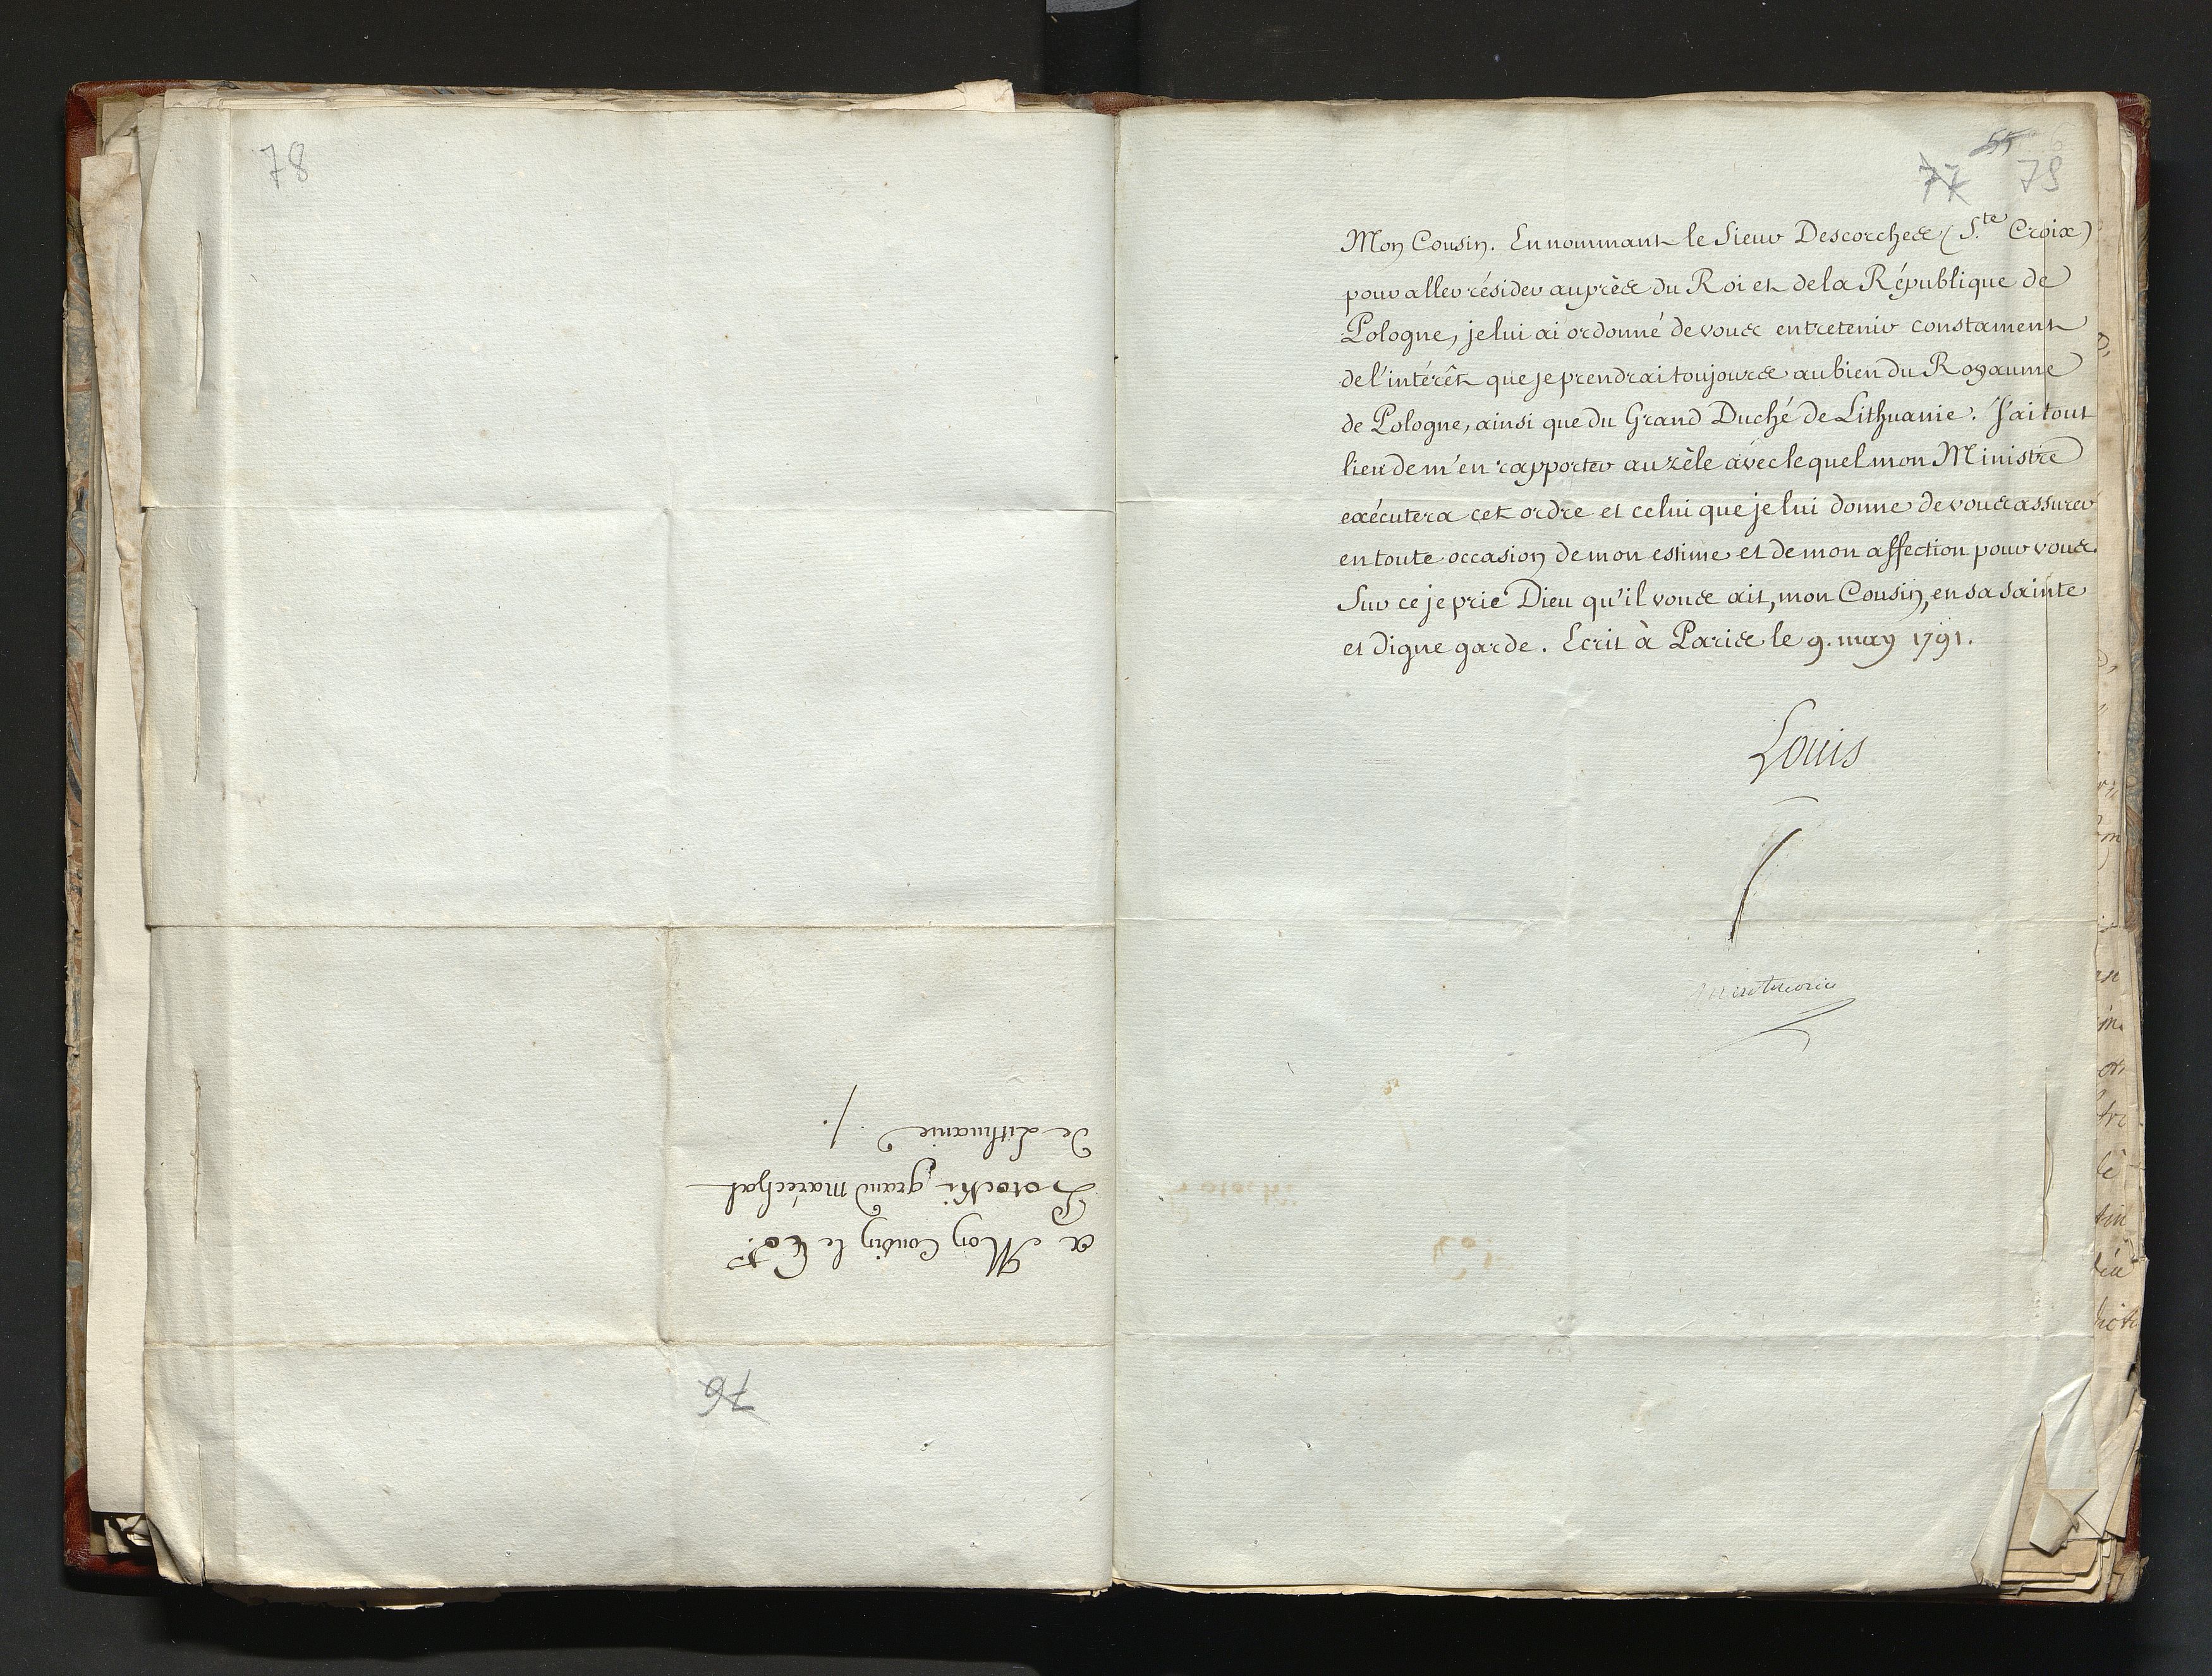 78
a Mon Cousin le Cte.
Potocki, grand maréchal
de Lithuanie ./.
76
55
77 79
Mon Cousin. En nommant le Sieur Descorches (S.te Croix)
pour aller résider auprès du Roi et de la République de
Pologne, je lui ai ordonné de vous entretenir constament
de l'intérêt que je prendrai toujours au bien du Royaume
de Pologne, ainsi que du Grand Duché de Lithuanie. J'ai tout
lieu de m'en rapporter au zèle avec lequel mon Ministre
exécutera cet ordre et celui que je lui donne de vous assurer
en toute occasion de mon estime et de mon affection pour vous.
Sur ce je prie Dieu qu'il vous ait, mon Cousin, en sa sainte
et digne garde. Ecrit à Paris le 9. may 1791.
Louis
Montmorin